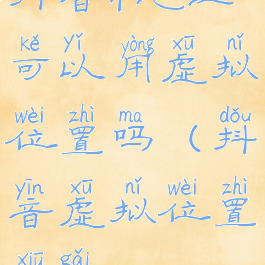 kě yǐ yòng xū nǐ
可以用虚拟
wèi zhì ma dǒu
位置吗（抖
yīn xū nǐ wèi zhì
音虚拟位置
xiū gǎi